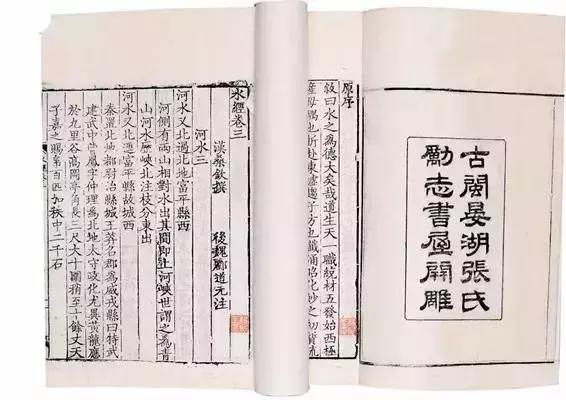 古閩晏湖張氏
勵志書屋開雕
原序
敘曰水之爲德大矣哉道生天一職統材五發始西極
水經卷三
漢桑欽撰　後魏酈道元注
河水三
河水又北過北地富平縣西
河側有兩山相對水出其間即上河峽世謂之爲青
山河水歷峽北注枝分東出
河水又北逕富平縣故城西
秦置北地都尉治縣城王莽名郡爲威戎縣曰特武
建武中曹鳳字仲理爲北地太守政化尤異黃龍應
於九里谷高岡亭角長三尺大十圍梢至十餘丈天
子嘉之賜帛百匹加秩中二千石